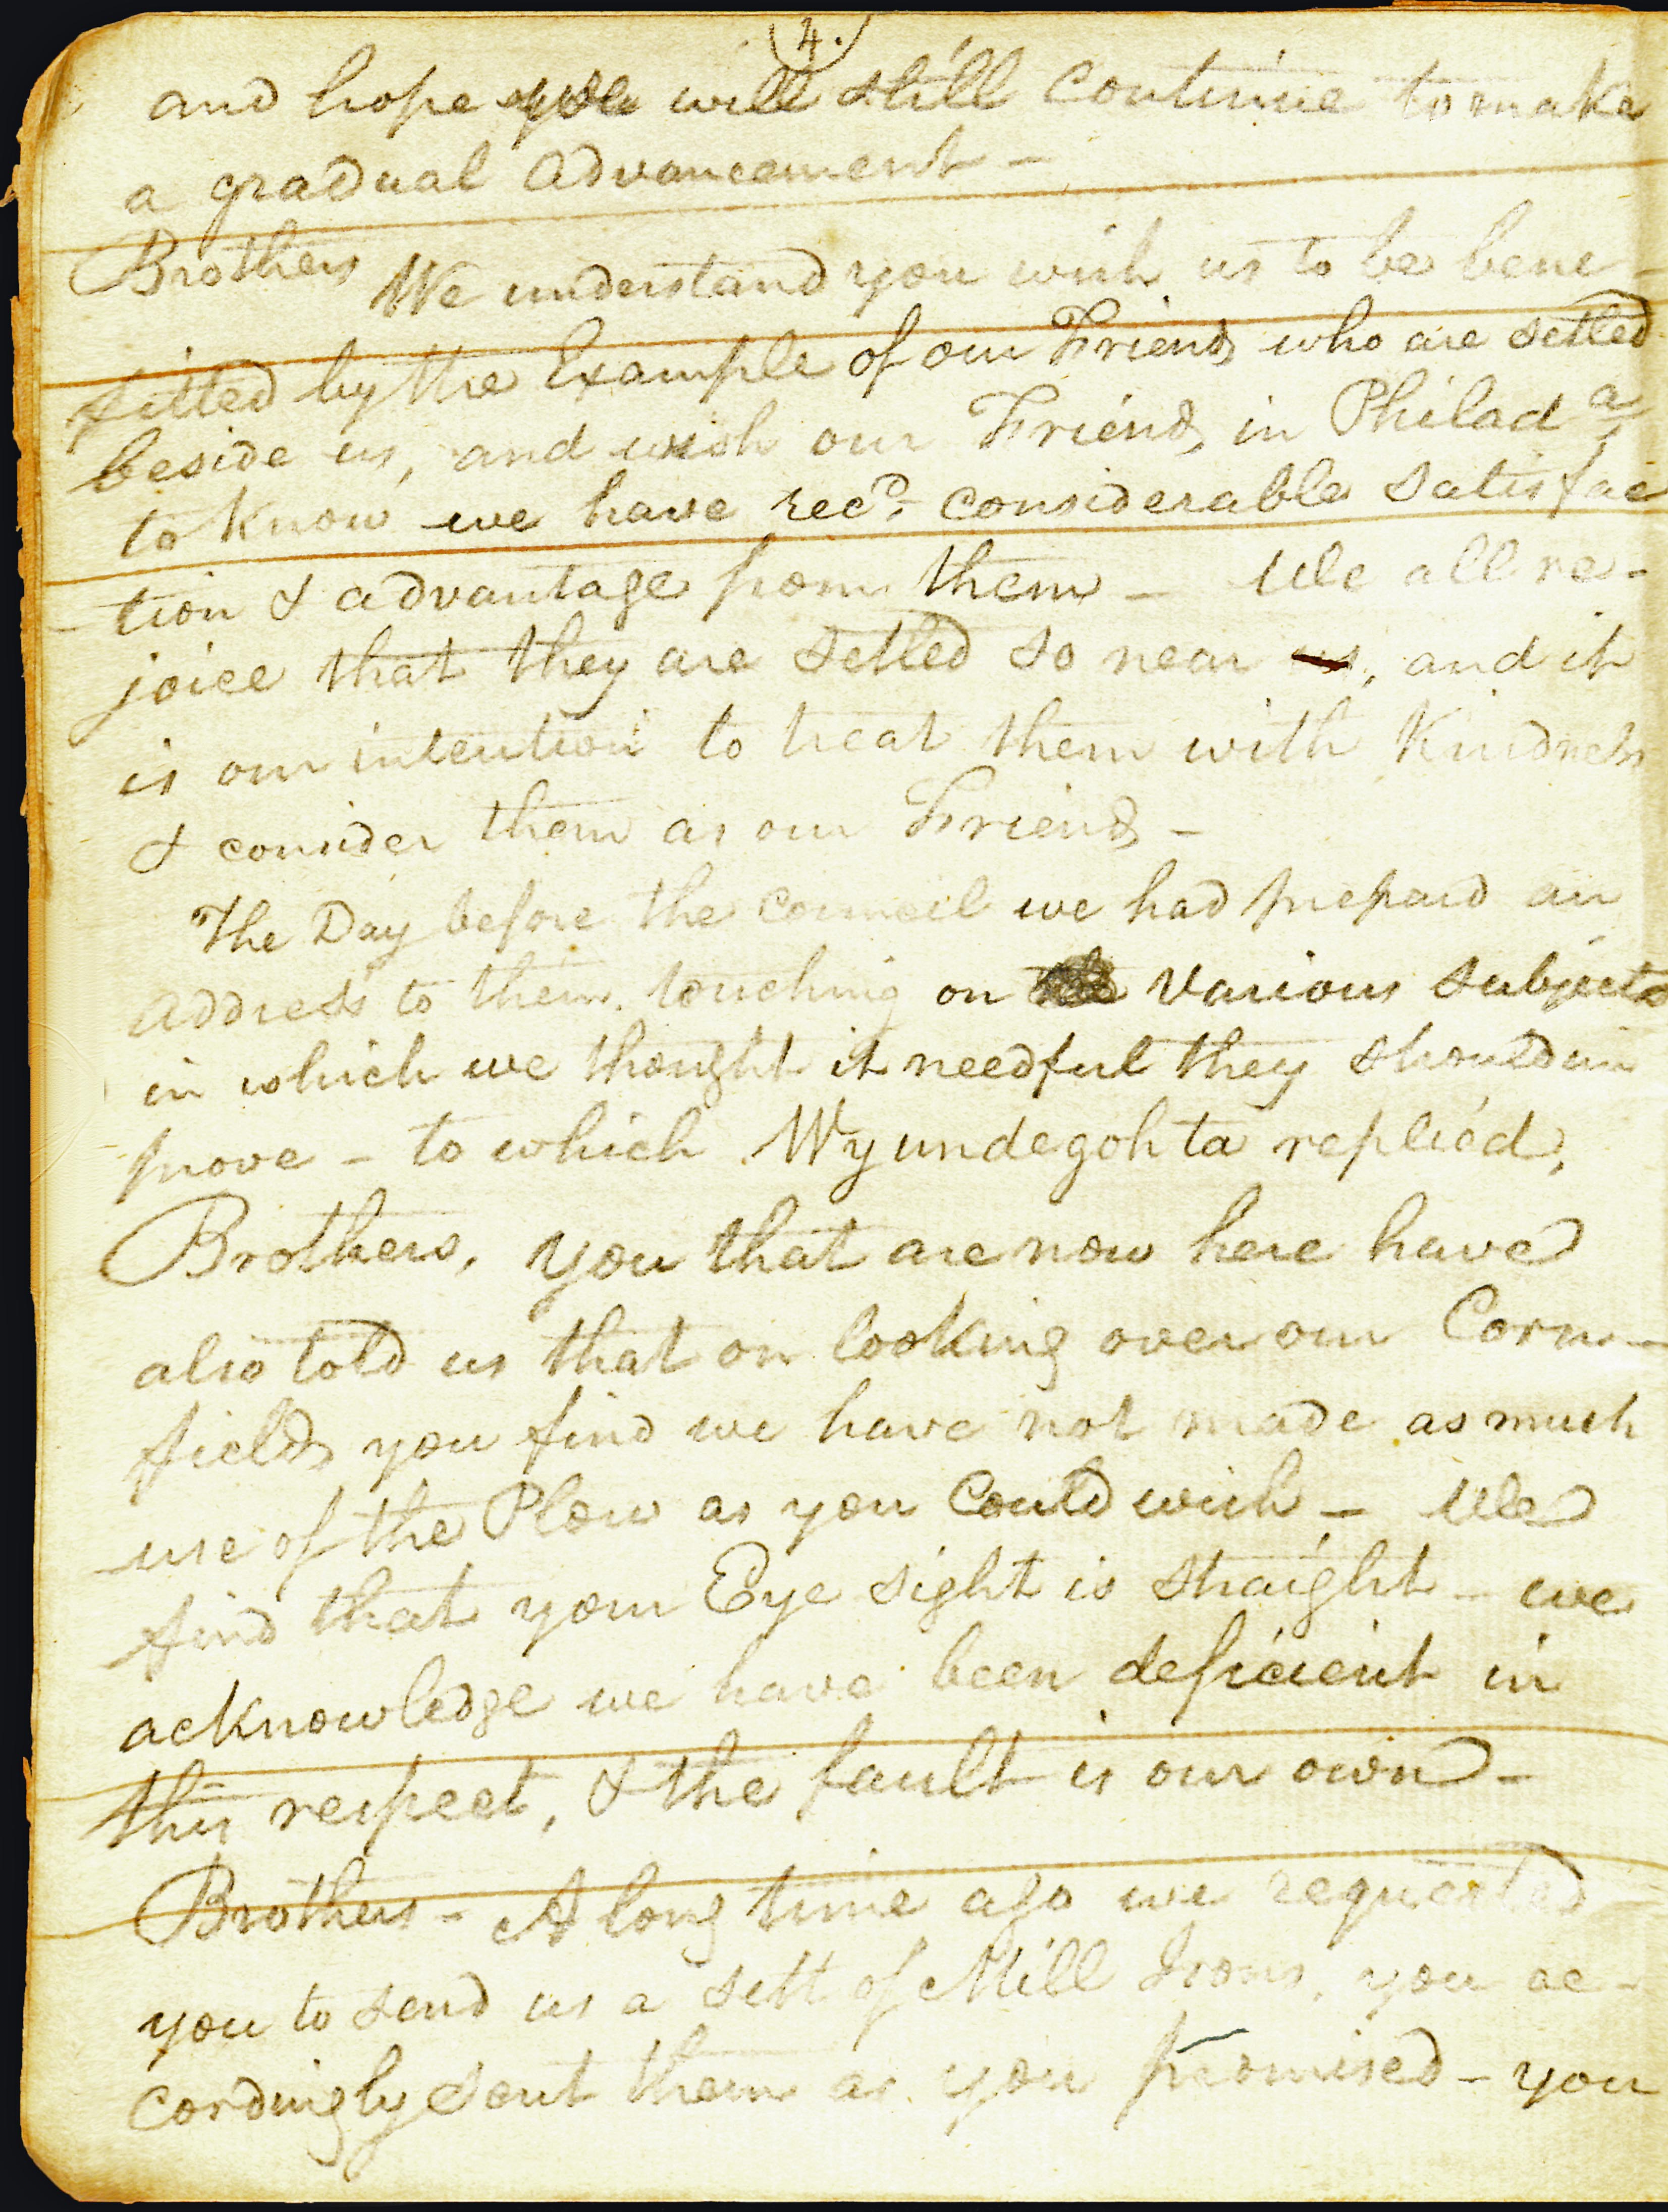 4.
and hope you will still continue to make
a gradual advancement –
Brothers We understand you wish us to be bene-
fitted by the Example of our Friends who are setled
beside us, and wish our Friends in Philada
to know we have recd. considerable satisfac
- tion & advantage from them – We all re-
joice that they are setled so near us, and it
is our intention to treat them with Kindness
& consider them as our Friends –
The Day before the council we had prepard an
address to them touching on various subjects
in which we thought it needful they should im
prove – to which Wyundegohta replied,
Brothers, you that are now here have
also told us that on looking over our Corn-
fields you find we have not made as much
use of the Plow as you Could wish – We
find that your Eye sight is straight – we
acknowledge we have been deficient in
this respect, & the fault is our own –
Brothers – A long time ago we requested
you to send us a sett of Mill Irons, you ac-
cordingly sent them as you promised – you